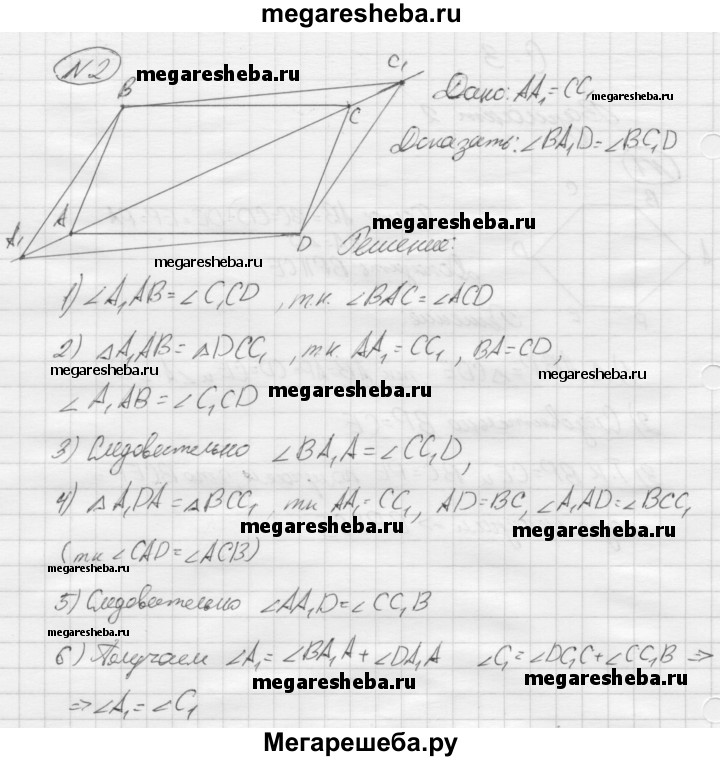 megaresheba.ru
N2
megaresheba.ru
B
C1
C
A
A1
D
Дано: AA1 = CC1
megaresheba.ru
Доказать: ∠BA1D = ∠BC1D
megaresheba.ru
megaresheba.ru
Решение:
1) ∠A1AB = ∠C1CD , т.к. ∠BAC = ∠ACD
2) △A1AB = △DCC1 , т.к. AA1 = CC1 , BA = CD,
megaresheba.ru
megaresheba.ru
∠A1AB = ∠C1CD
megaresheba.ru
3) Следовательно ∠BA1A = ∠CC1D,
4) △A1DA = △BCC1 , т.к AA1 = CC1 , AD = BC, ∠A1AD = ∠BCC1
megaresheba.ru
megaresheba.ru
(т.к ∠CAD = ∠ACB)
megaresheba.ru
5) Следовательно ∠AA1D = ∠CC1B
megaresheba.ru
6) Получаем ∠A1 = ∠BA1A + ∠DA1A ∠C1 = ∠DC1C + ∠CC1B ⇒
megaresheba.ru
megaresheba.ru
⇒ ∠A1 = ∠C1
Мегарешеба.ру